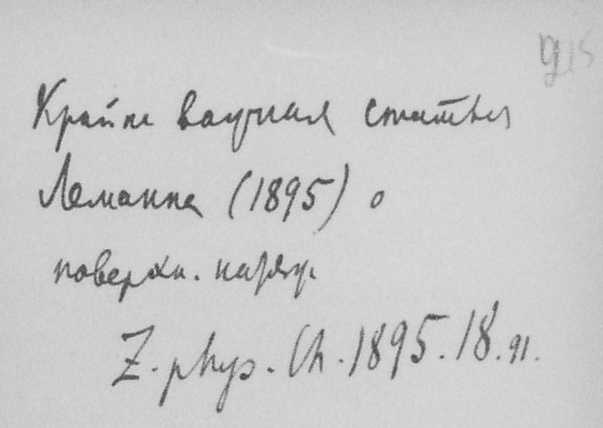 Крайне важная статья
Леманна (1895) о
поверхн. натяж.
Z. phys. Ch. 1895. 18. 91.